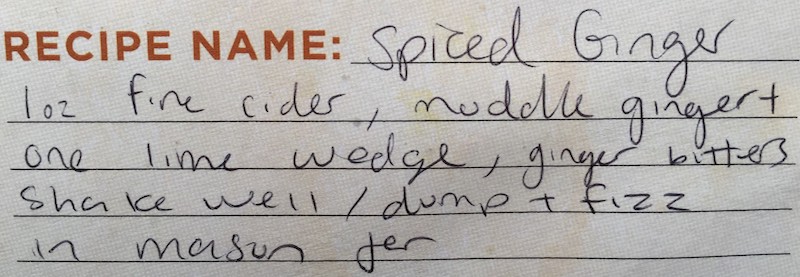 RECIPE NAME: Spiced Ginger
1oz fire cider, muddle ginger +
one lime wedge, ginger bitters
Shake well / dump + fizz
in mason jer